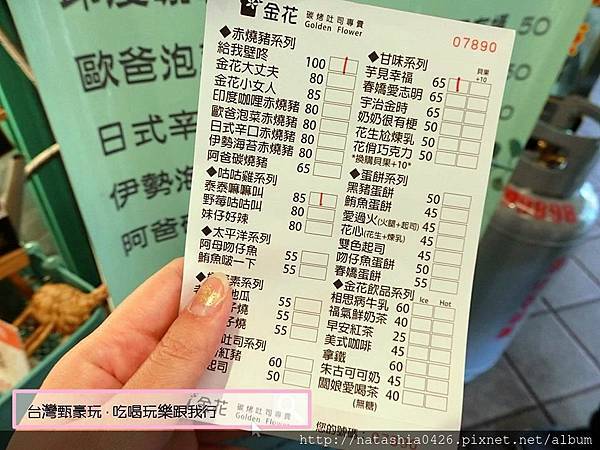 歐爸泡
50
日式辛
伊勢海
阿爸碳
金花 碳烤吐司專賣
Golden Flower
07890
◆赤燒豬系列
給我壁咚 100
金花大丈夫 80
金花小女人 85
印度咖哩赤燒豬 80
歐爸泡菜赤燒豬 80
日式辛口赤燒豬 80
伊勢海苔赤燒豬 80
阿爸碳燒豬 65
◆咕咕雞系列
泰泰嘛嘛叫 85
野莓咕咕叫 80
妹仔好辣 80
◆太平洋系列
阿母吻仔魚 55
鮪魚啵一下 55
素系列
地瓜 55
仔燒 55
仔燒 50
吐司系列
紅豬 60
起司 50
◆甘味系列 貝果+10
芋見幸福 65
春嬌愛志明 65
宇治金時 65
奶奶很有梗 50
花生尬煉乳 50
花俏巧克力 50
*換購貝果+10*
◆蛋餅系列
黑豬蛋餅 50
鮪魚蛋餅 45
愛過火(火腿+起司) 45
花心(花生+煉乳) 45
雙色起司 45
吻仔魚蛋餅 45
春嬌蛋餅 50
◆金花飲品系列 Ice Hot
相思病牛乳 60
福氣鮮奶茶 40
早安紅茶 25
美式咖啡 45
拿鐵
朱古可可奶 45
闆娘愛喝茶 40
(無糖)
您的號碼
金花 碳烤吐司專賣
Golden Flower
台灣甄豪玩·吃喝玩樂跟我行
http://natashia0426.pixnet.net/album